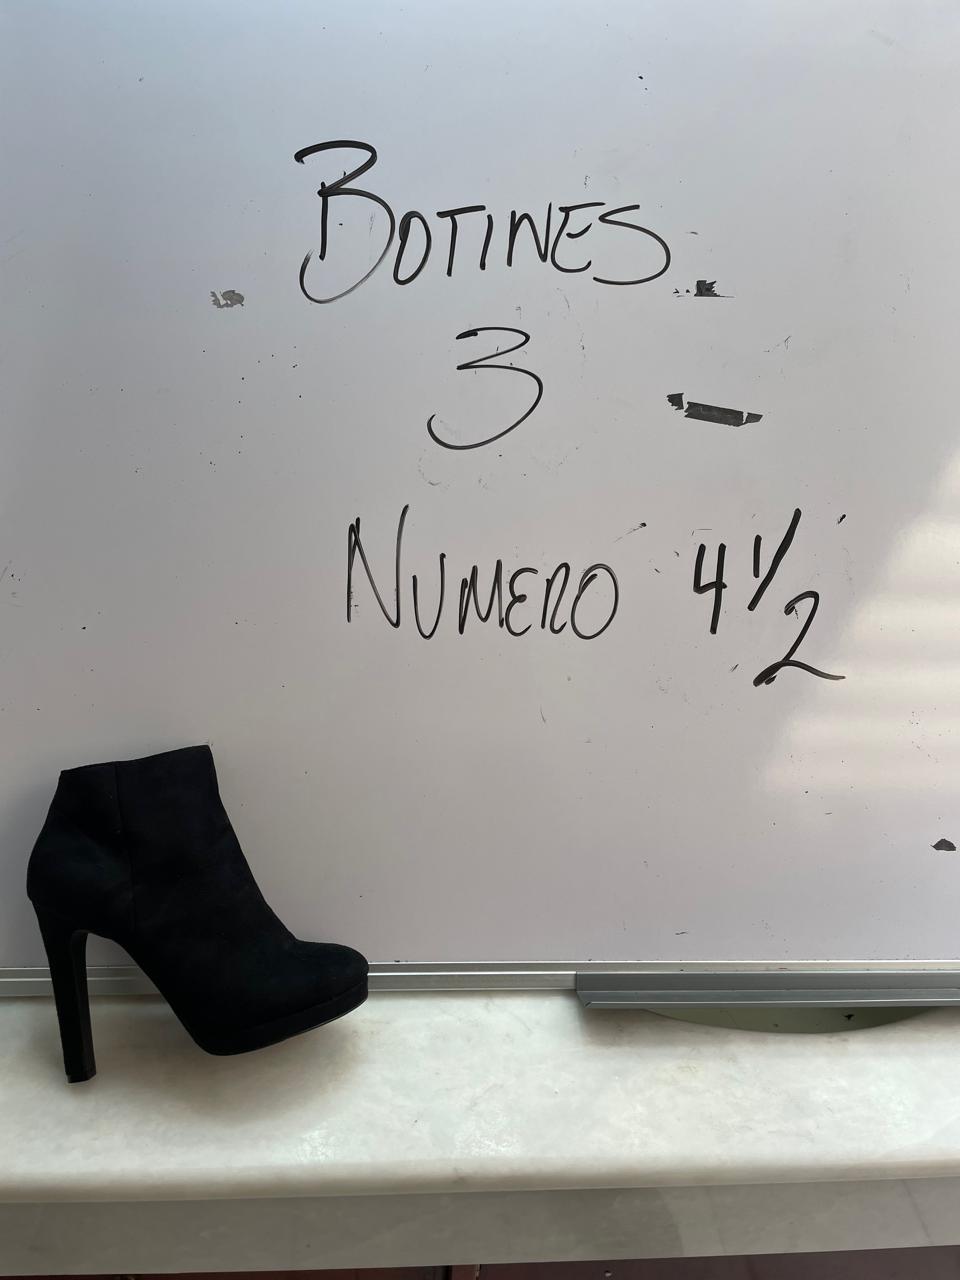 BOTINES
3
NUMERO 4 1/2